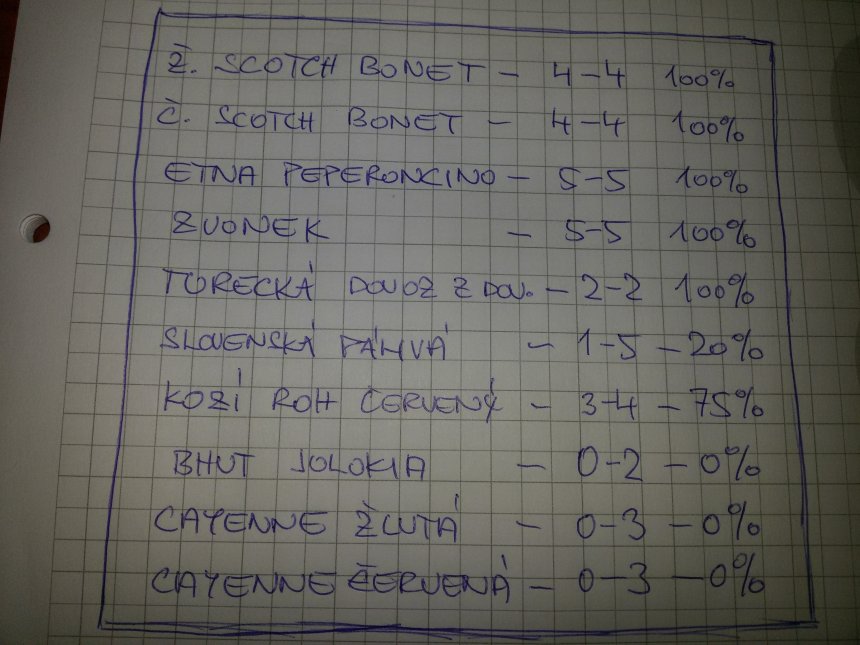 Ž. SCOTCH BONET - 4-4 100%
Č. SCOTCH BONET - 4-4 100%
ETNA PEPERONCINO - 5-5 100%
ZVONEK - 5-5 100%
TURECKÁ DOVOZ Z DOV. - 2-2 100%
SLOVENSKÁ PÁHVÁ - 1-5 - 20%
KOZÍ ROH ČERVENÝ - 3-4 - 75%
BHUT JOLOKIA - 0-2 - 0%
CAYENNE ŽLUTÁ - 0-3 - 0%
CAYENNE ČERVENÁ - 0-3 - 0%